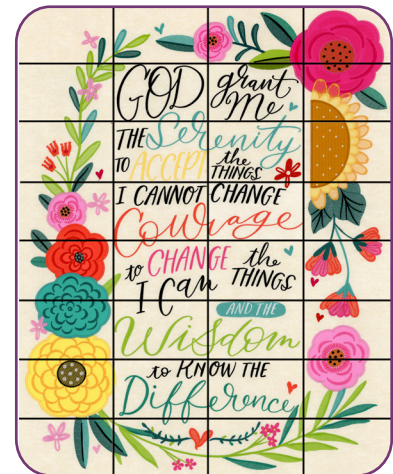 GOD grant
Me
THE Serenity
TO ACCEPT the
THINGS
I CANNOT CHANGE
Courage
to CHANGE the
THINGS
I Can
AND THE
Wisdom
to KNOW THE
Difference